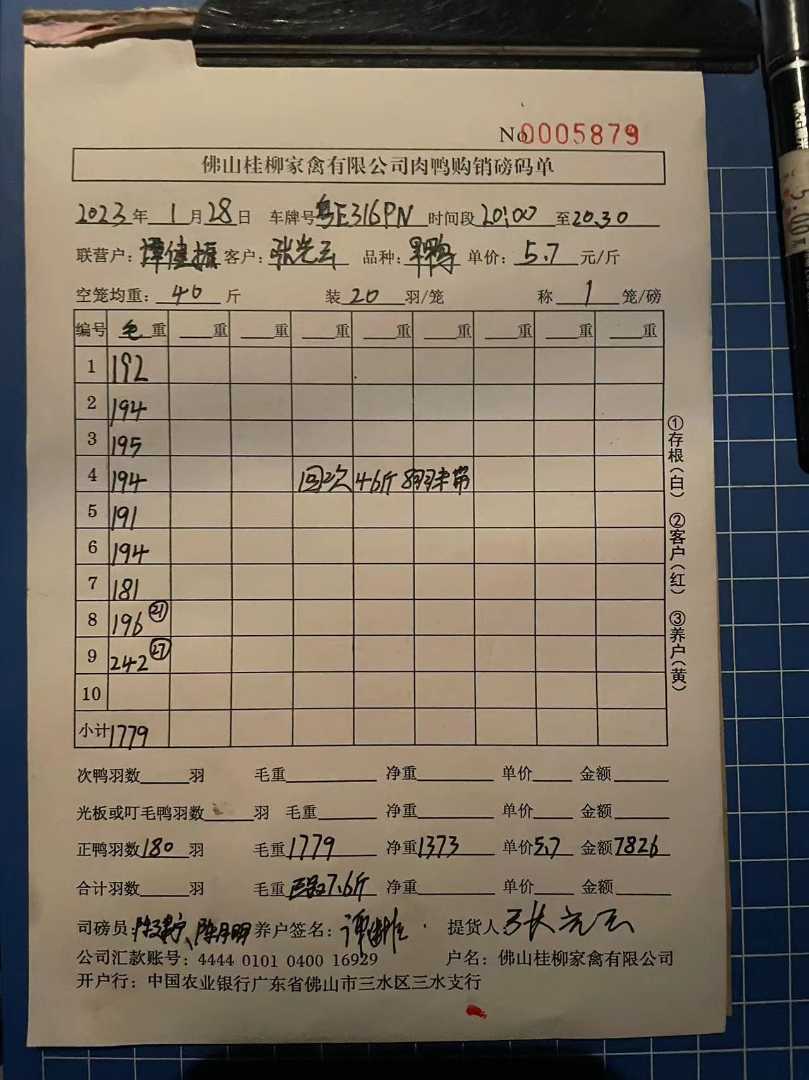 No0005879
佛山桂柳家禽有限公司肉鸭购销磅码单
2023年1月28日 车牌号粤E316PN 时间段20:00至20.30
联营户：谭健振 客户：张光云 品种： 单价：5.7元/斤
空笼均重：40斤 装20羽/笼 称1笼/磅
编号 毛重 重 重 重 重 重 重 重 重
1 192
2 194
3 195
4 194 46斤
5 191
6 194
7 181
8 196 21
9 242 27
10
小计 1779
①存根（白） ②客户（红） ③养户（黄）
次鸭羽数 羽 毛重 净重 单价 金额
光板或叮毛鸭羽数 羽 毛重 净重 单价 金额
正鸭羽数180羽 毛重1779 净重1373 单价5.7 金额7826
合计羽数 羽 毛重 7.6斤 净重 单价 金额
司磅员： 养户签名： 提货人张光云
公司汇款账号：4444 0101 0400 16929 户名：佛山桂柳家禽有限公司
开户行：中国农业银行广东省佛山市三水区三水支行